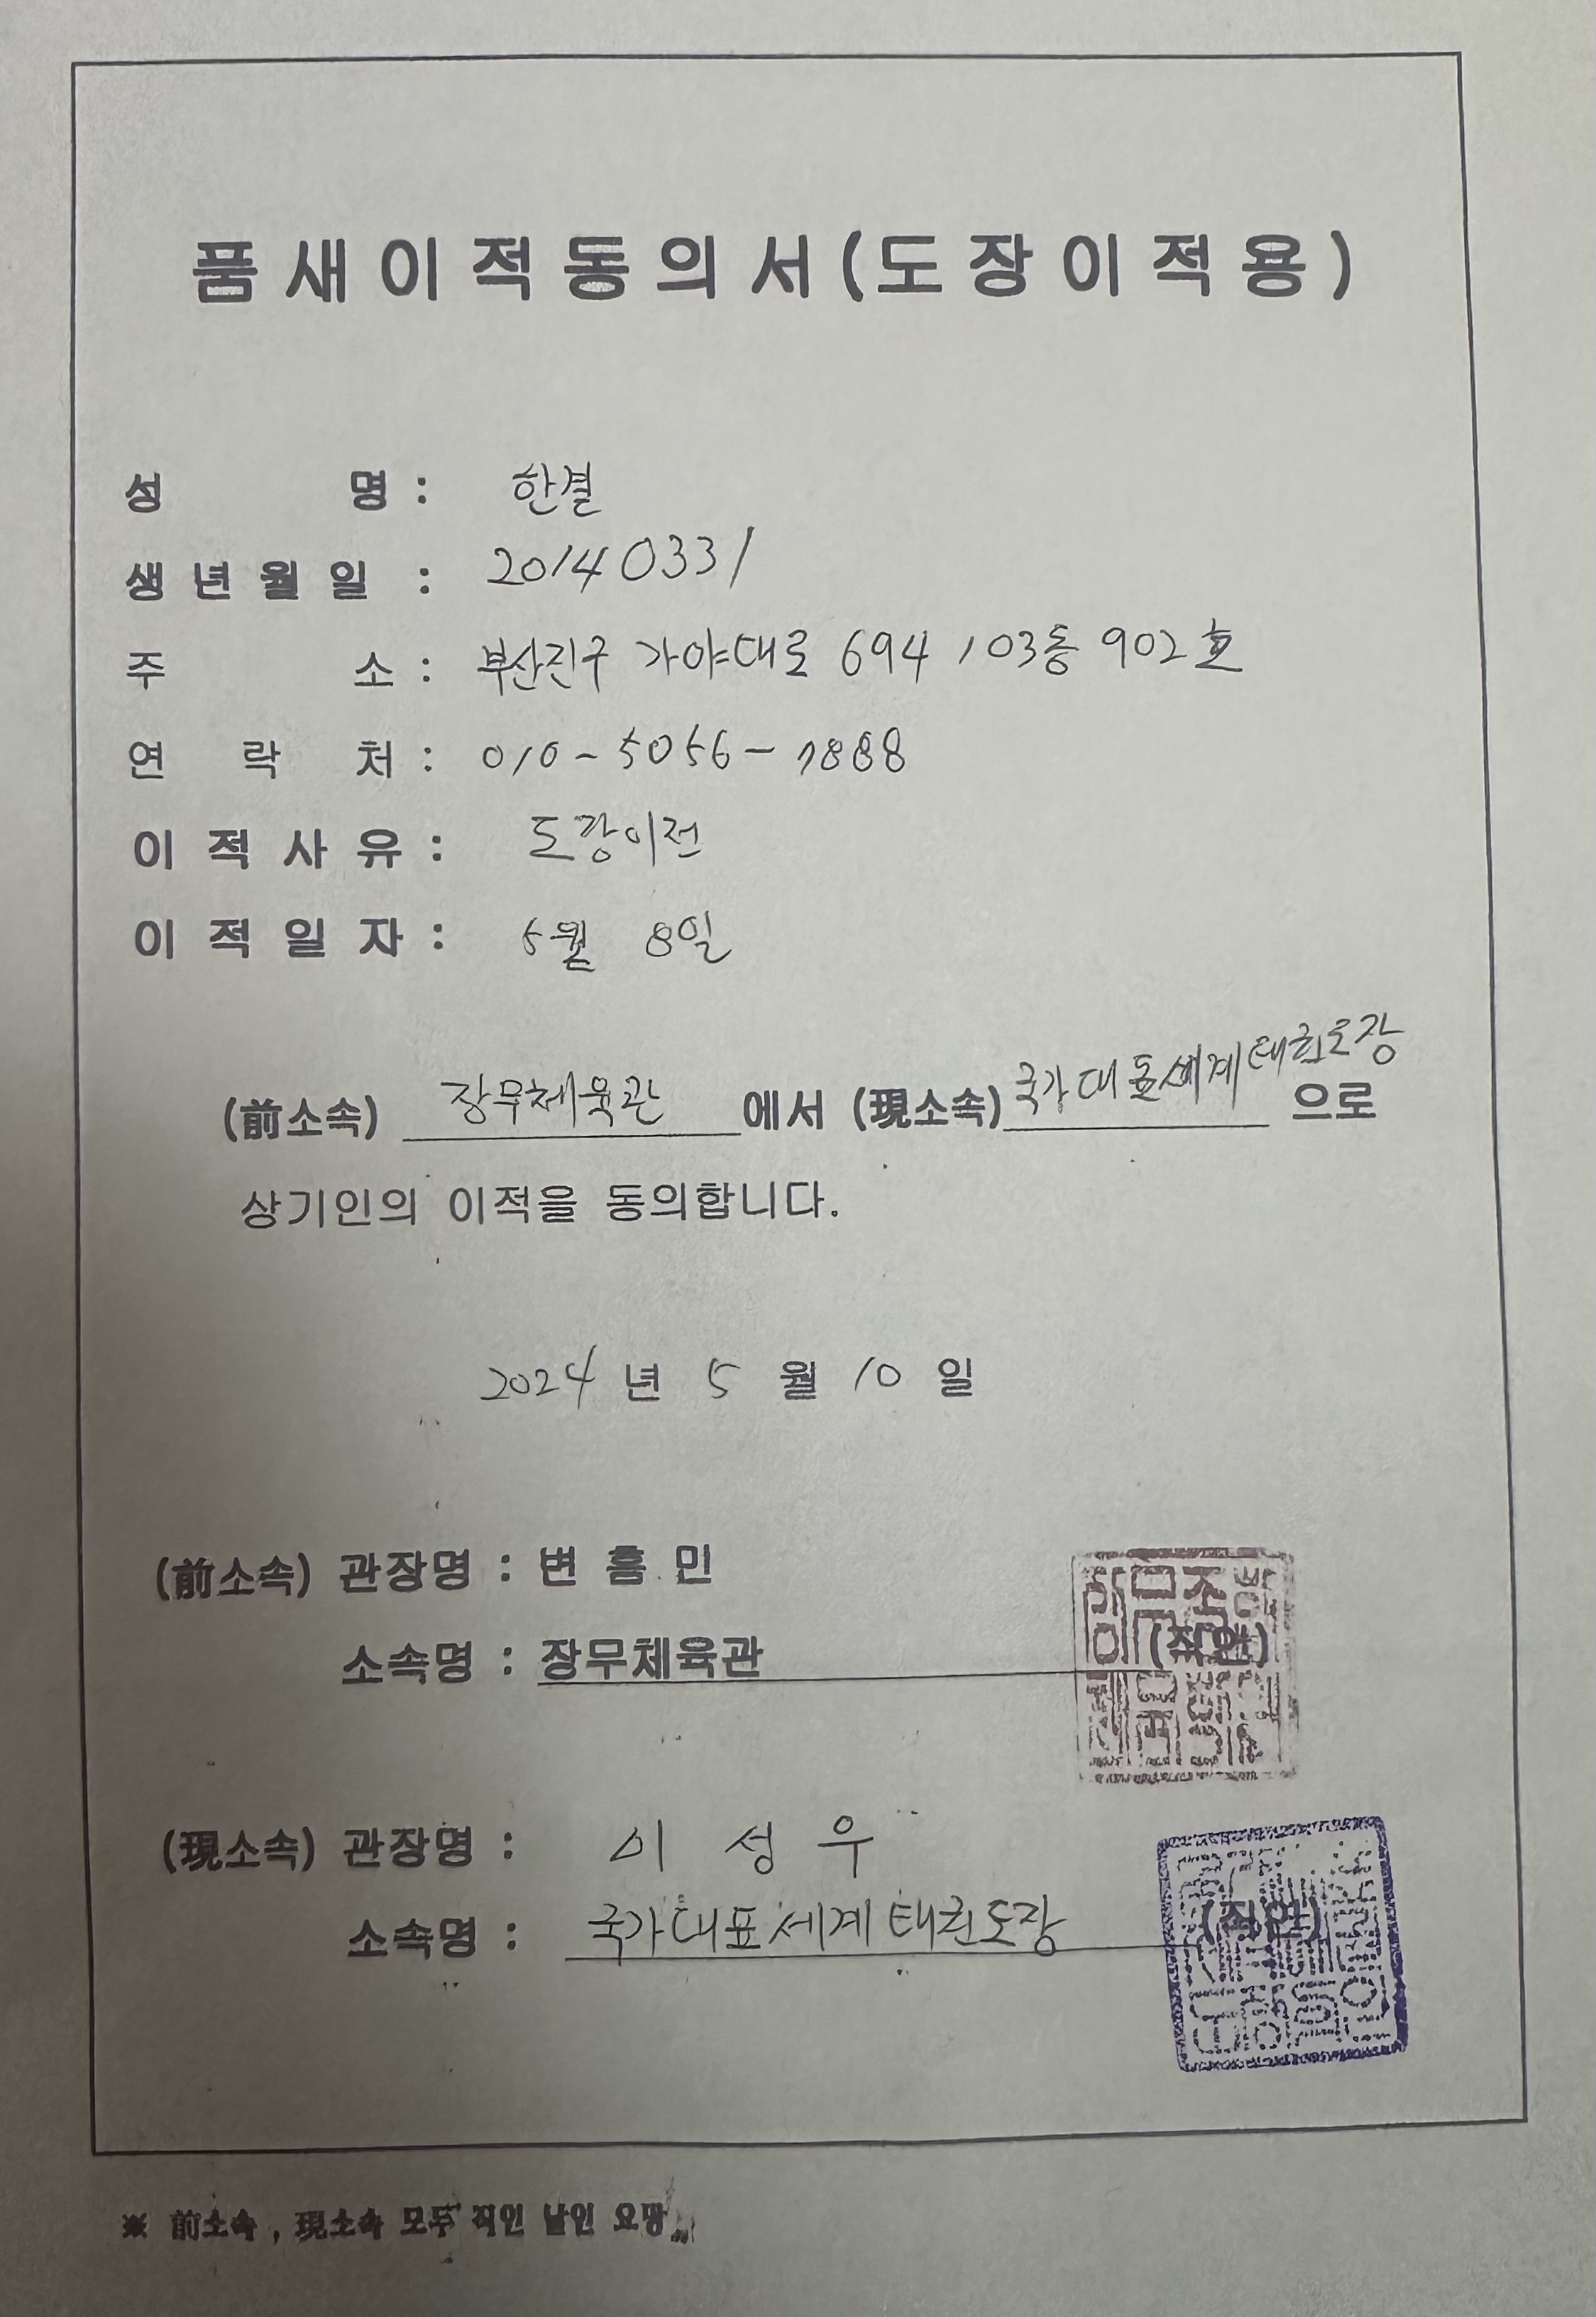 품새이적동의서(도장이적용)
성 명 : 한결
생년월일 : 20140331
주 소 : 부산진구 가야대로 694 103동 902호
연 락 처 : 010-5056-7888
이적사유 : 도장이전
이적일자 : 5월 8일
(前소속) 장무체육관 에서 (現소속) 국가대표세계태권도장 으로
상기인의 이적을 동의합니다.
2024 년 5 월 10 일
(前소속) 관장명 : 변흠민
소속명 : 장무체육관 (직인)
(現소속) 관장명 : 이성우
소속명 : 국가대표세계태권도장 (직인)
※ 前소속, 現소속 모두 직인 날인 요망